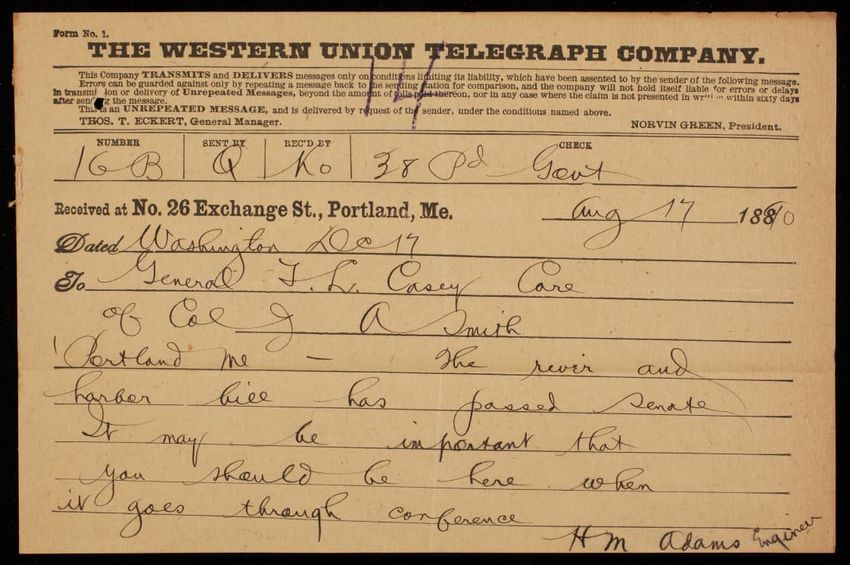 Form No. 1.
THE WESTERN UNION TELEGRAPH COMPANY.
14
This Company TRANSMITS and DELIVERS messages only on conditions limiting its liability, which have been assented to by the sender of the following message.
Errors can be guarded against only by repeating a message back to the sending station for comparison, and the company will not hold itself liable for errors or delays
in transmi ion or delivery of Unrepeated Messages, beyond the amount of tolls paid thereon, nor in any case where the claim is not presented in writin within sixty days
after sending the message.
This is an UNREPEATED MESSAGE, and is delivered by request of the sender, under the conditions named above.
THOS. T. ECKERT, General Manager. NORVIN GREEN, President.
NUMBER SENT BY REC'D BY CHECK
16 B Q Ko 38 Pd Govt
Received at No. 26 Exchange St., Portland, Me. Aug 17 1890
Dated Washington DC 17
To General T. L. Casey Care
of Col J A Smith
Portland Me — The river and
harbor bill has passed Senate
It may be important that
you should be here when
it goes through conference
H M Adams Engineer